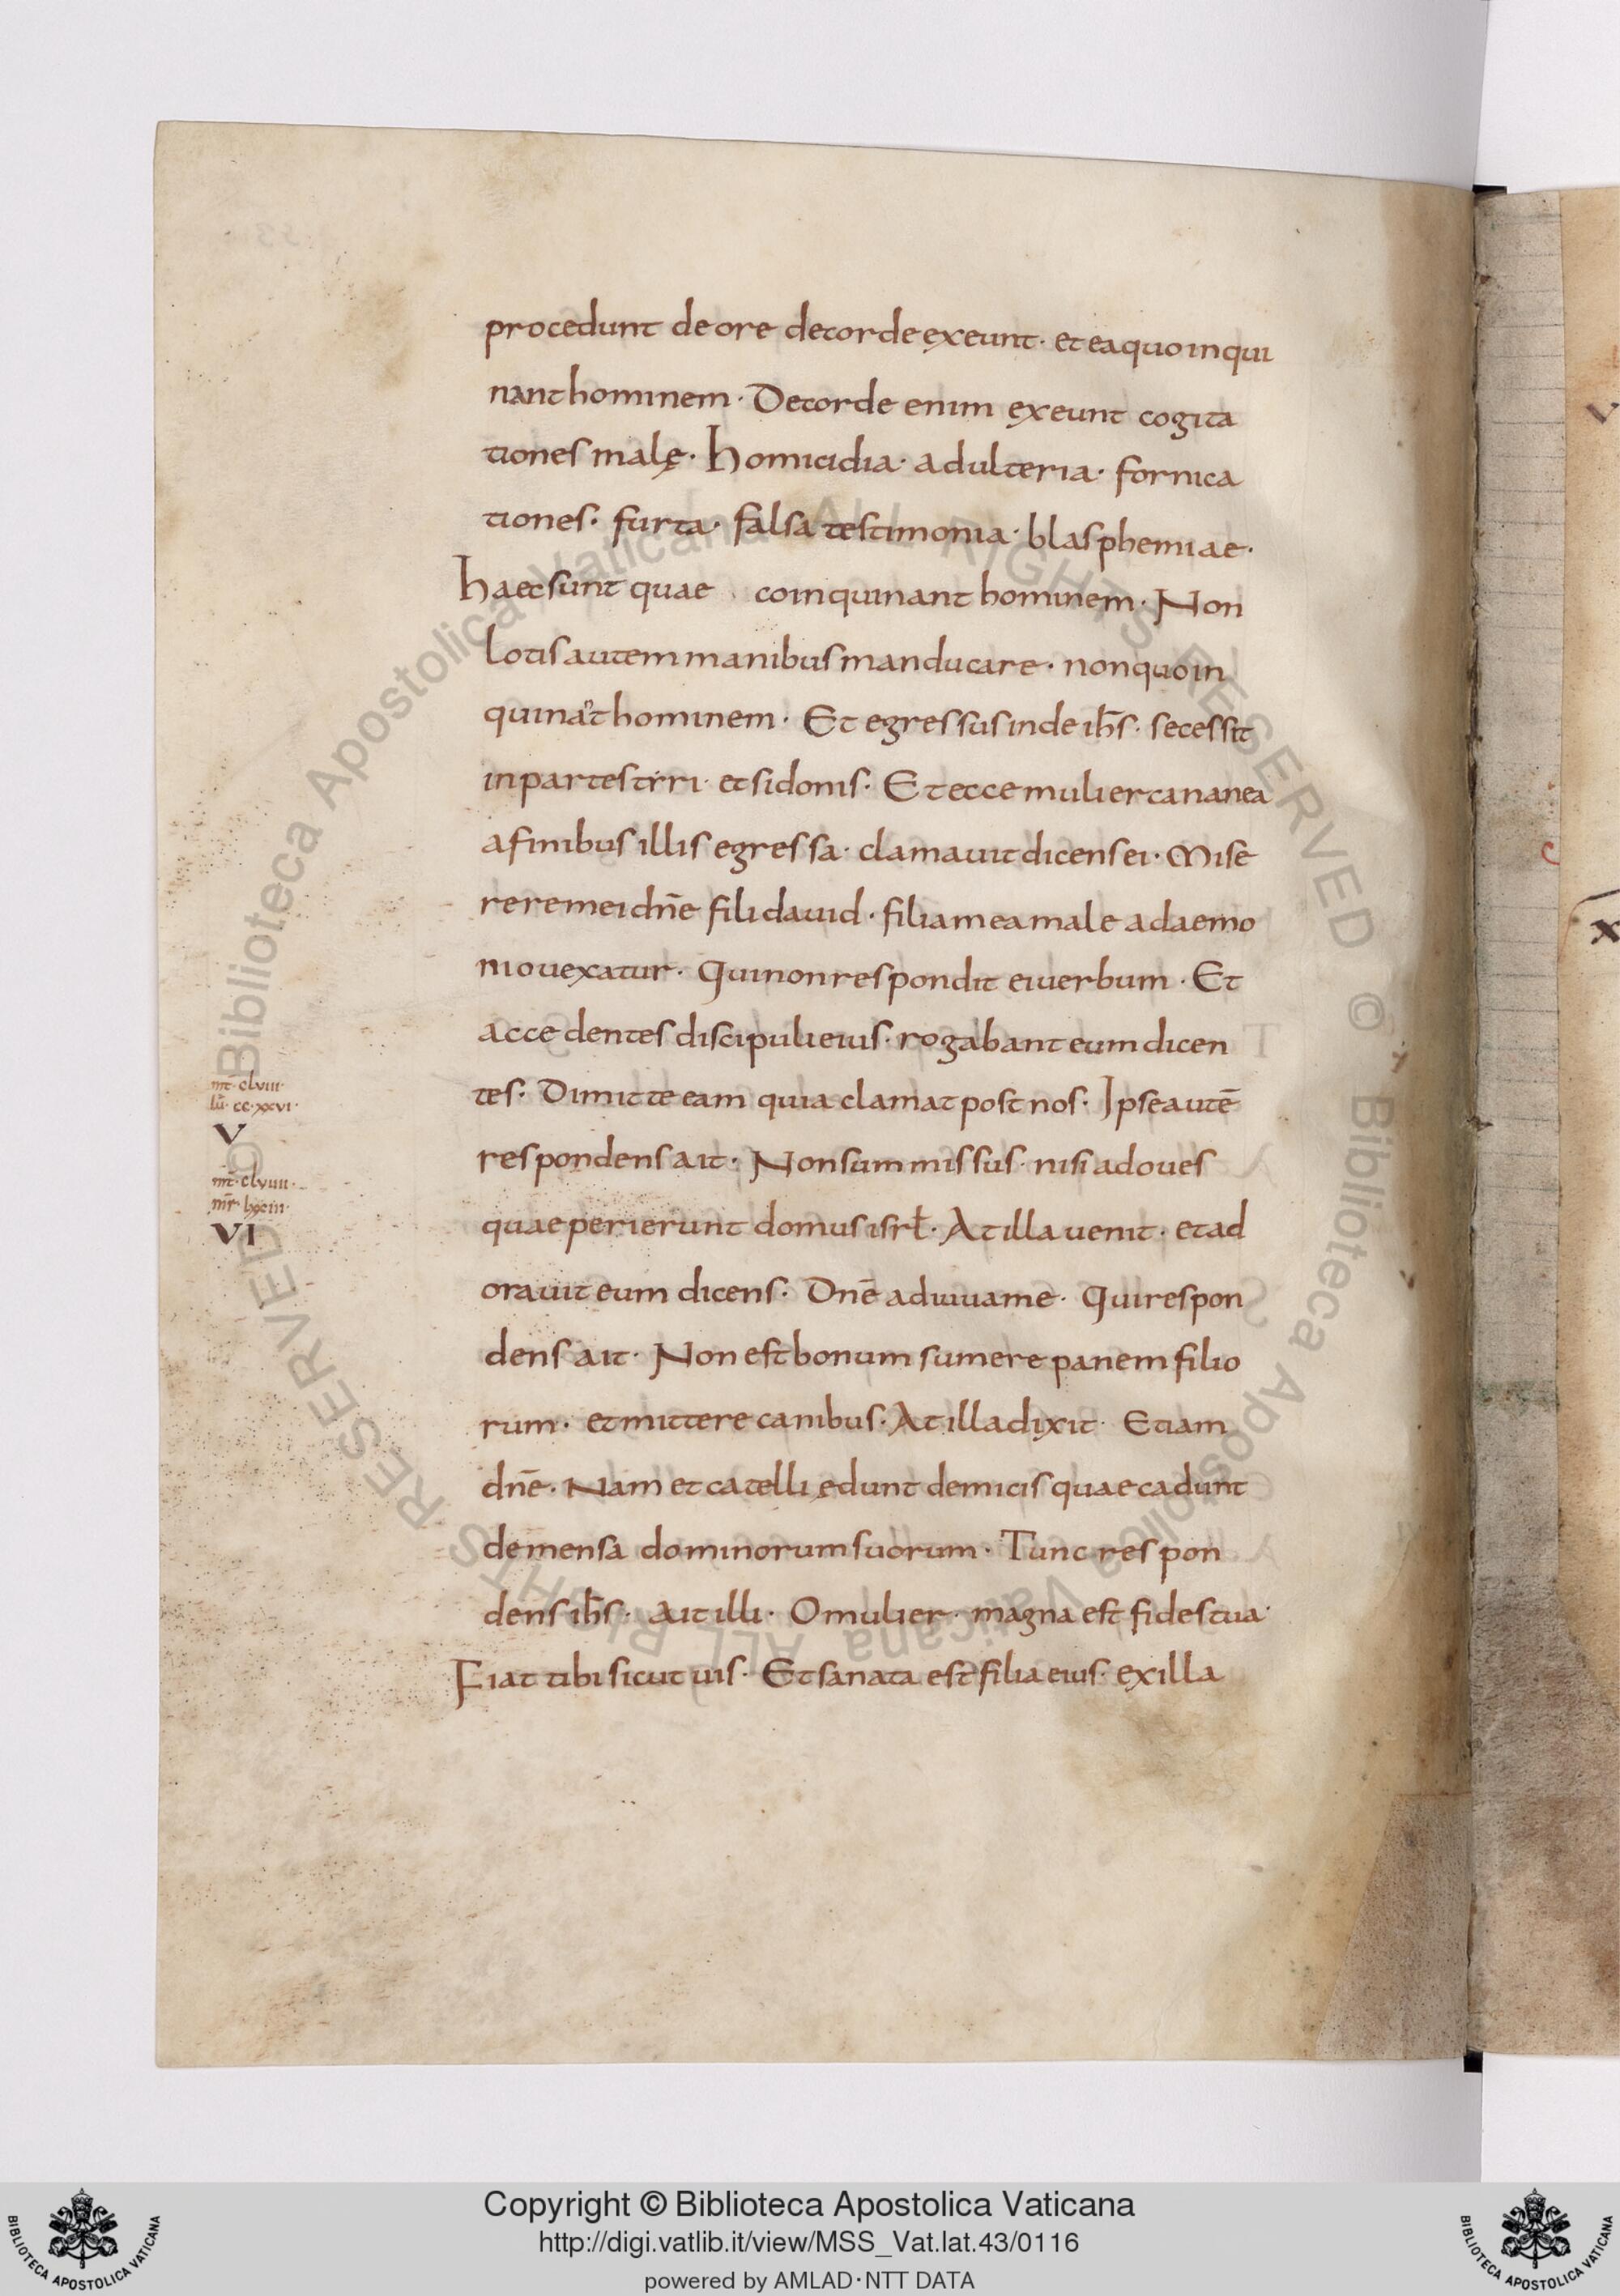 procedunt de ore decorde exeunt · et ea quoinqui
nant hominem · Decorde enim exeunt cogita
tiones malę · homicidia · adulteria · fornica
tiones · furta · falsa testimonia · blasphemiae ·
haec sunt quae coinquinant hominem · Non
lotis autem manibus manducare · non quoin
quinat hominem · Et egressus inde ih̄s · secessit
in partes tẏri · et sidonis · Et ecce mulier cananea
a finibus illis egressa · clamauit dicens ei · Mise
rere mei dn̄e fili dauid · filia mea male a daemo
nio uexatur · Qui non respondit ei uerbum · Et
accedentes discipuli eius · rogabant eum dicen
tes · Dimitte eam quia clamat post nos · Ipse autē
respondens ait · Non sum missus · nisi ad oues
quae perierunt domus isrł · At illa uenit · et ad
orauit eum dicens · Dn̄e adiuua me · Qui respon
dens ait · Non est bonum sumere panem filio
rum · et mittere canibus · At illa dixit · Etiam
dn̄e · Nam et catelli ędunt de micis quae cadunt
de mensa dominorum suorum · Tunc respon
dens ih̄s · Ait illi · O mulier · magna est fides tua ·
Fiat tibi sicut uis · Et sanata est filia eius · ex illa
mt̄ · clviii ·
lū · cc · xxvi ·
V
mt̄ · clviiii ·
mr̄ · lxiii ·
VI
© Biblioteca Apostolica Vaticana ALL RIGHTS RESERVED
© Biblioteca Apostolica Vaticana ALL RIGHTS RESERVED
Copyright © Biblioteca Apostolica Vaticana
http://digi.vatlib.it/view/MSS_Vat.lat.43/0116
powered by AMLAD·NTT DATA
BIBLIOTECA APOSTOLICA VATICANA
BIBLIOTECA APOSTOLICA VATICANA